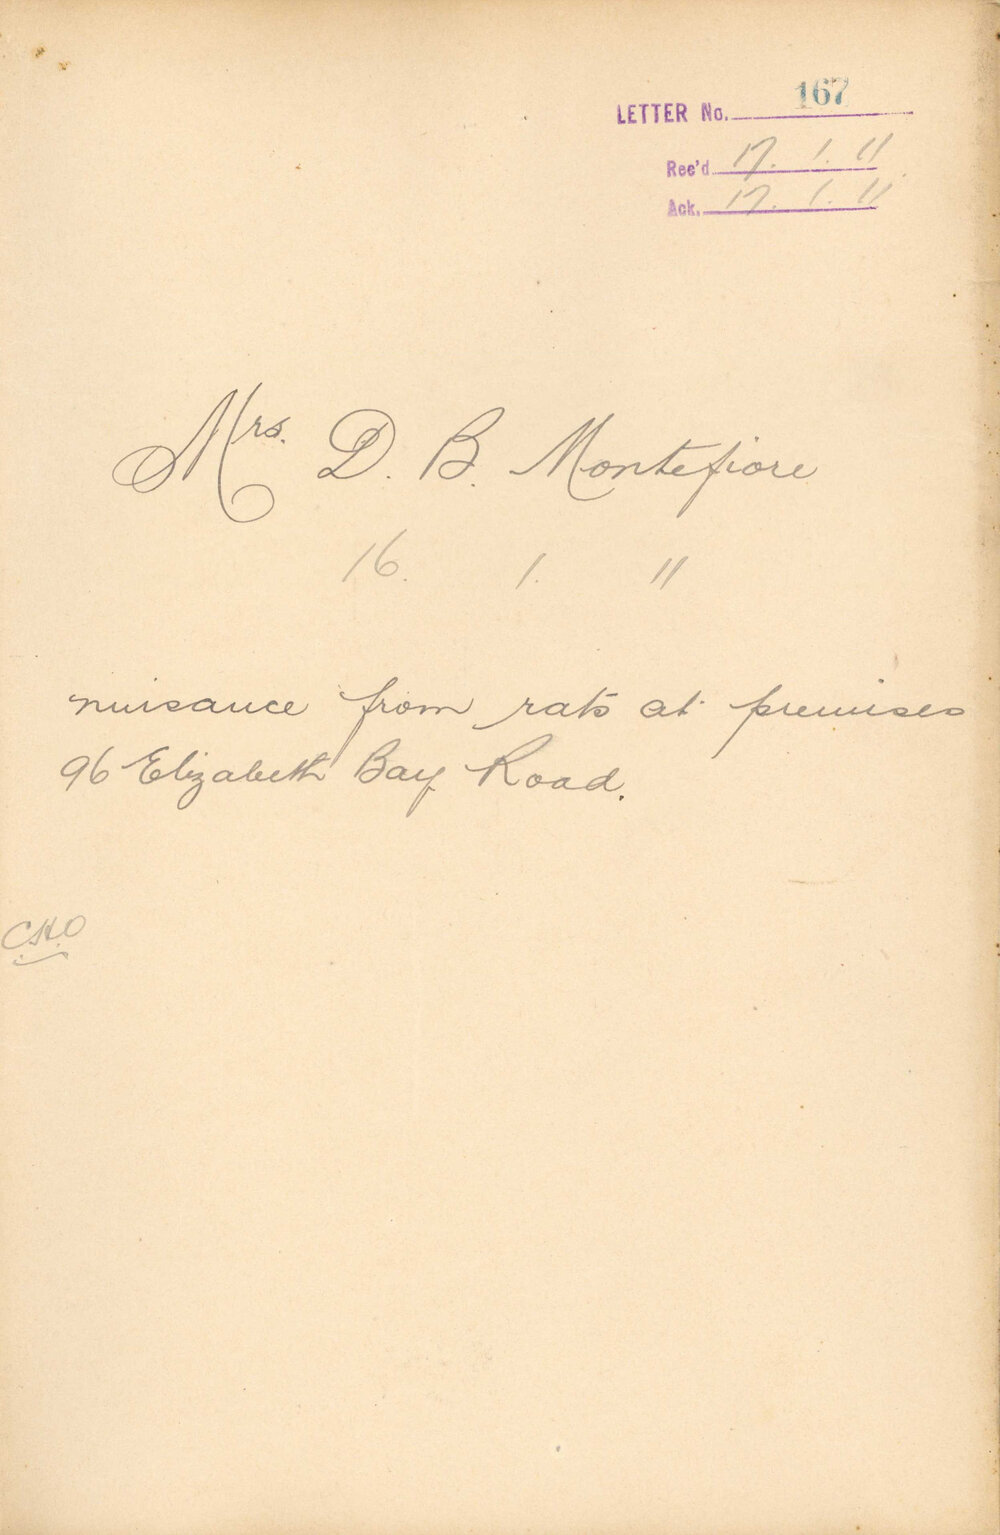 LETTER No. 167
Rec'd 17. 1. 11
Ack. 17. 1. 11
Mrs. D. B. Montefiore
16. 1. 11
nuisance from rats at premises
96 Elizabeth Bay Road.
C.H.O